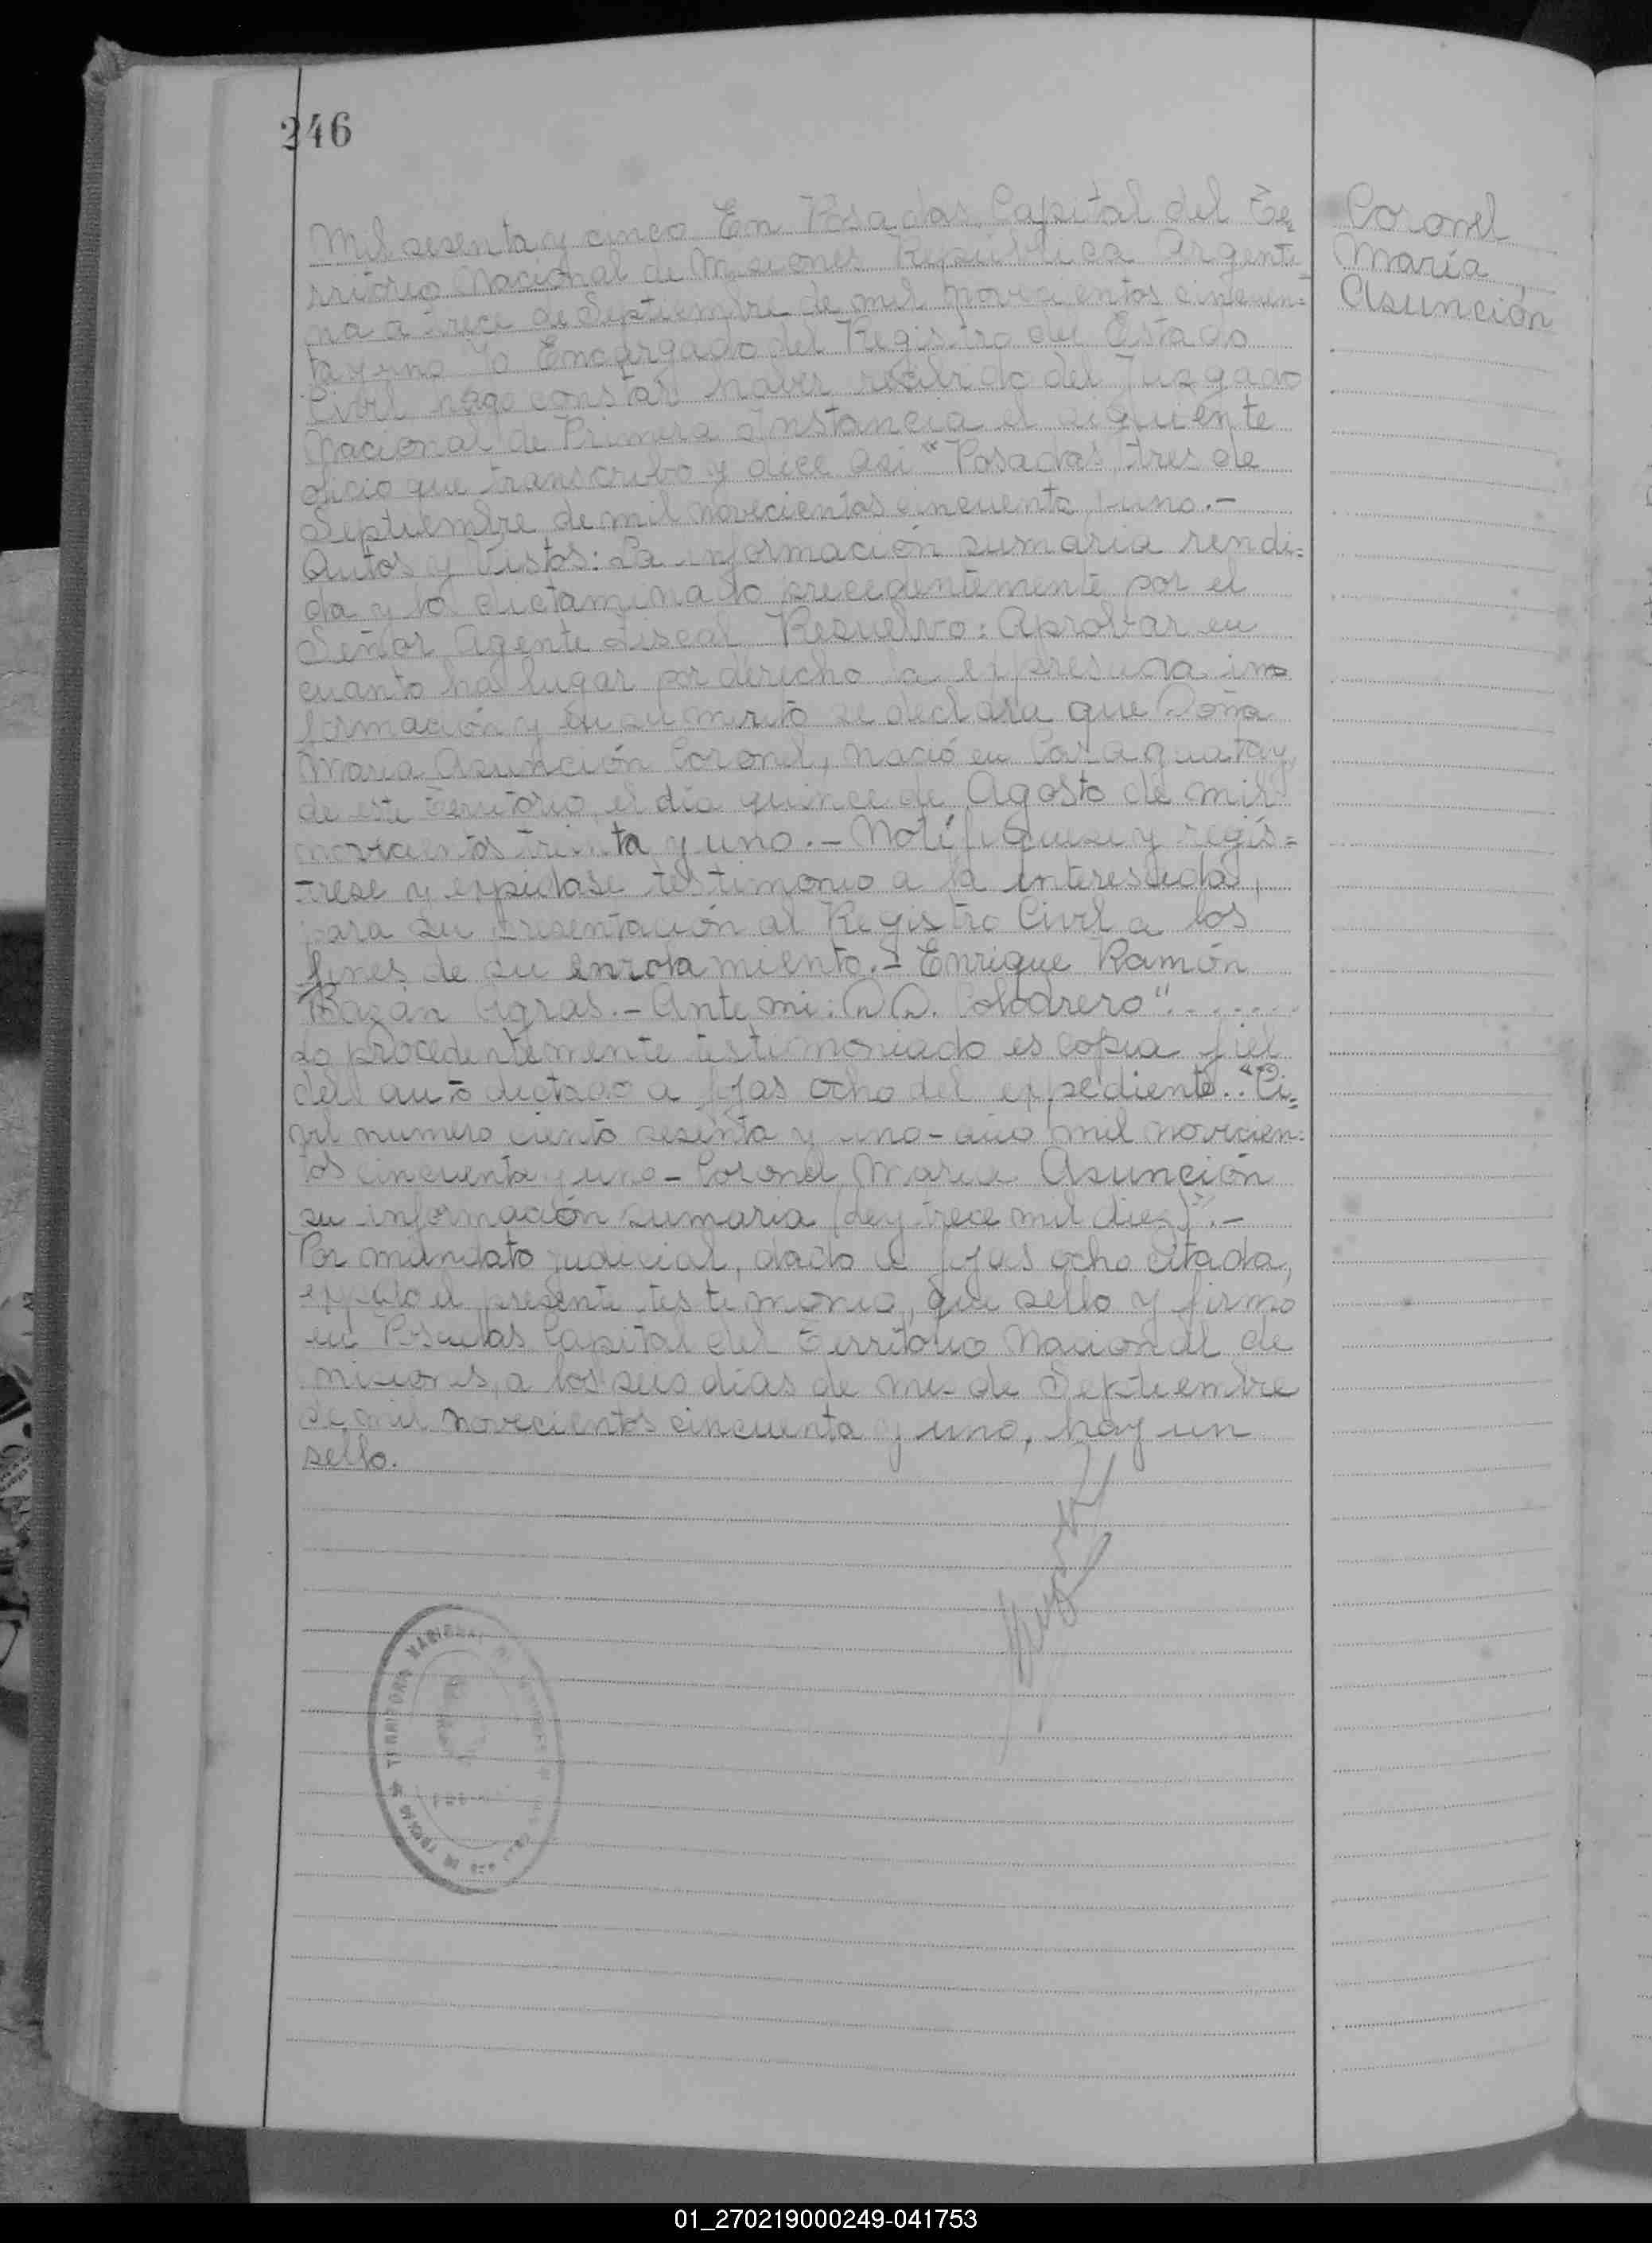 246
Mil sesenta y cinco En Posadas, Capital del Te=
rritorio Nacional de Misiones República Argenti=
na a trece de Septiembre de mil novecientos cincuen=
ta y uno Yo Encargado del Registro del Estado
Civil hago constar haber recibido del Juzgado
Nacional de Primera Instancia el siguiente
oficio que transcribo y dice asi "Posadas, tres de
Septiembre de mil novecientos cincuenta y uno.-
Autos y Vistos: La información sumaria rendi=
da y lo dictaminado precedentemente por el
Señor Agente Fiscal Resuelvo: Aprobar en
cuanto ha lugar por derecho la expresada in=
formación y en su merito se declara que Doña
Maria Asunción Coronel, nació en Caraguatay,
de este Territorio, el día quince de Agosto de mil
novecientos treinta y uno.- Notifiquese y regís=
trese y expidase testimonio a la interesada,
para su presentación al Registro Civil a los
fines de su enrolamiento.- Enrique Ramón
Bazán Agras.- Ante mi: D.D. Colodrero".......
Lo precedentemente testimoniado es copia fiel
del auto dictado a fojas ocho del expediente.: "Ci=
vil numero ciento sesenta y uno-año mil novecien=
tos cincuenta y uno- Coronel Maria Asunción
su información sumaria (Ley trece mil diez)".-
Por mandato judicial, dado a fojas ocho citada,
expido el presente testimonio, que sello y firmo
en Posadas Capital del Territorio Nacional de
Misiones, a los seis días de mes de Septiembre
de mil novecientos cincuenta y uno, hay un
sello.
Coronel
María
Asunción
TERRITORIO NACIONAL
01_270219000249-041753